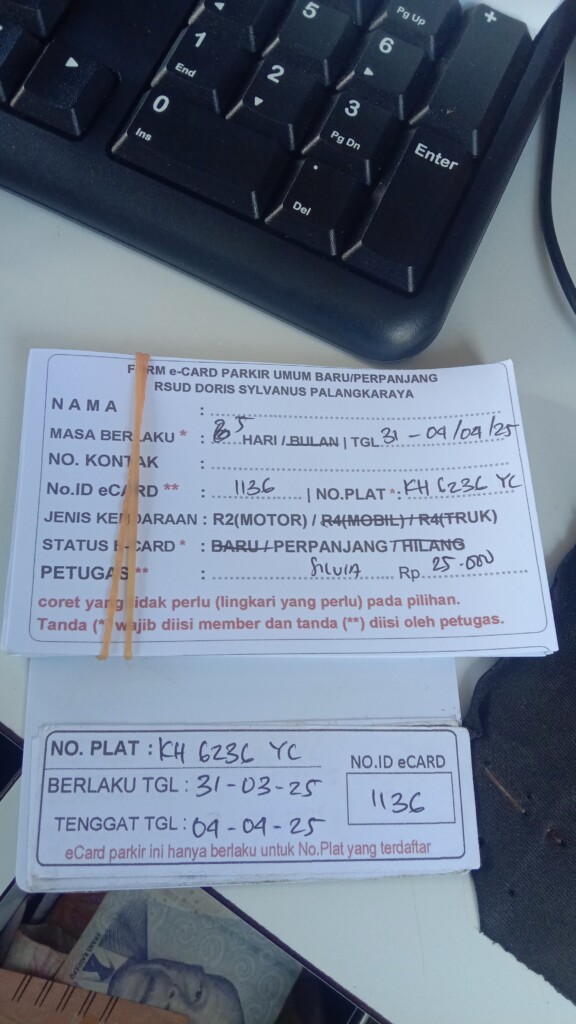 5
Pg Up
+
1
End
2
6
0
Ins
3
Pg Dn
Enter
.
Del
FORM e-CARD PARKIR UMUM BARU/PERPANJANG
RSUD DORIS SYLVANUS PALANGKARAYA
NAMA :
MASA BERLAKU * : 5 HARI / BULAN | TGL 31 - 04/04/25
NO. KONTAK :
No.ID eCARD ** : 1136 | NO.PLAT * : KH 6236 YC
JENIS KENDARAAN : R2(MOTOR) / R4(MOBIL) / R4(TRUK)
STATUS E-CARD * : BARU / PERPANJANG / HILANG
PETUGAS ** : SILVIA Rp. 25.000
coret yang tidak perlu (lingkari yang perlu) pada pilihan.
Tanda (*) wajib diisi member dan tanda (**) diisi oleh petugas.
NO. PLAT : KH 6236 YC
NO.ID eCARD
BERLAKU TGL : 31-03-25
1136
TENGGAT TGL : 04-04-25
eCard parkir ini hanya berlaku untuk No.Plat yang terdaftar